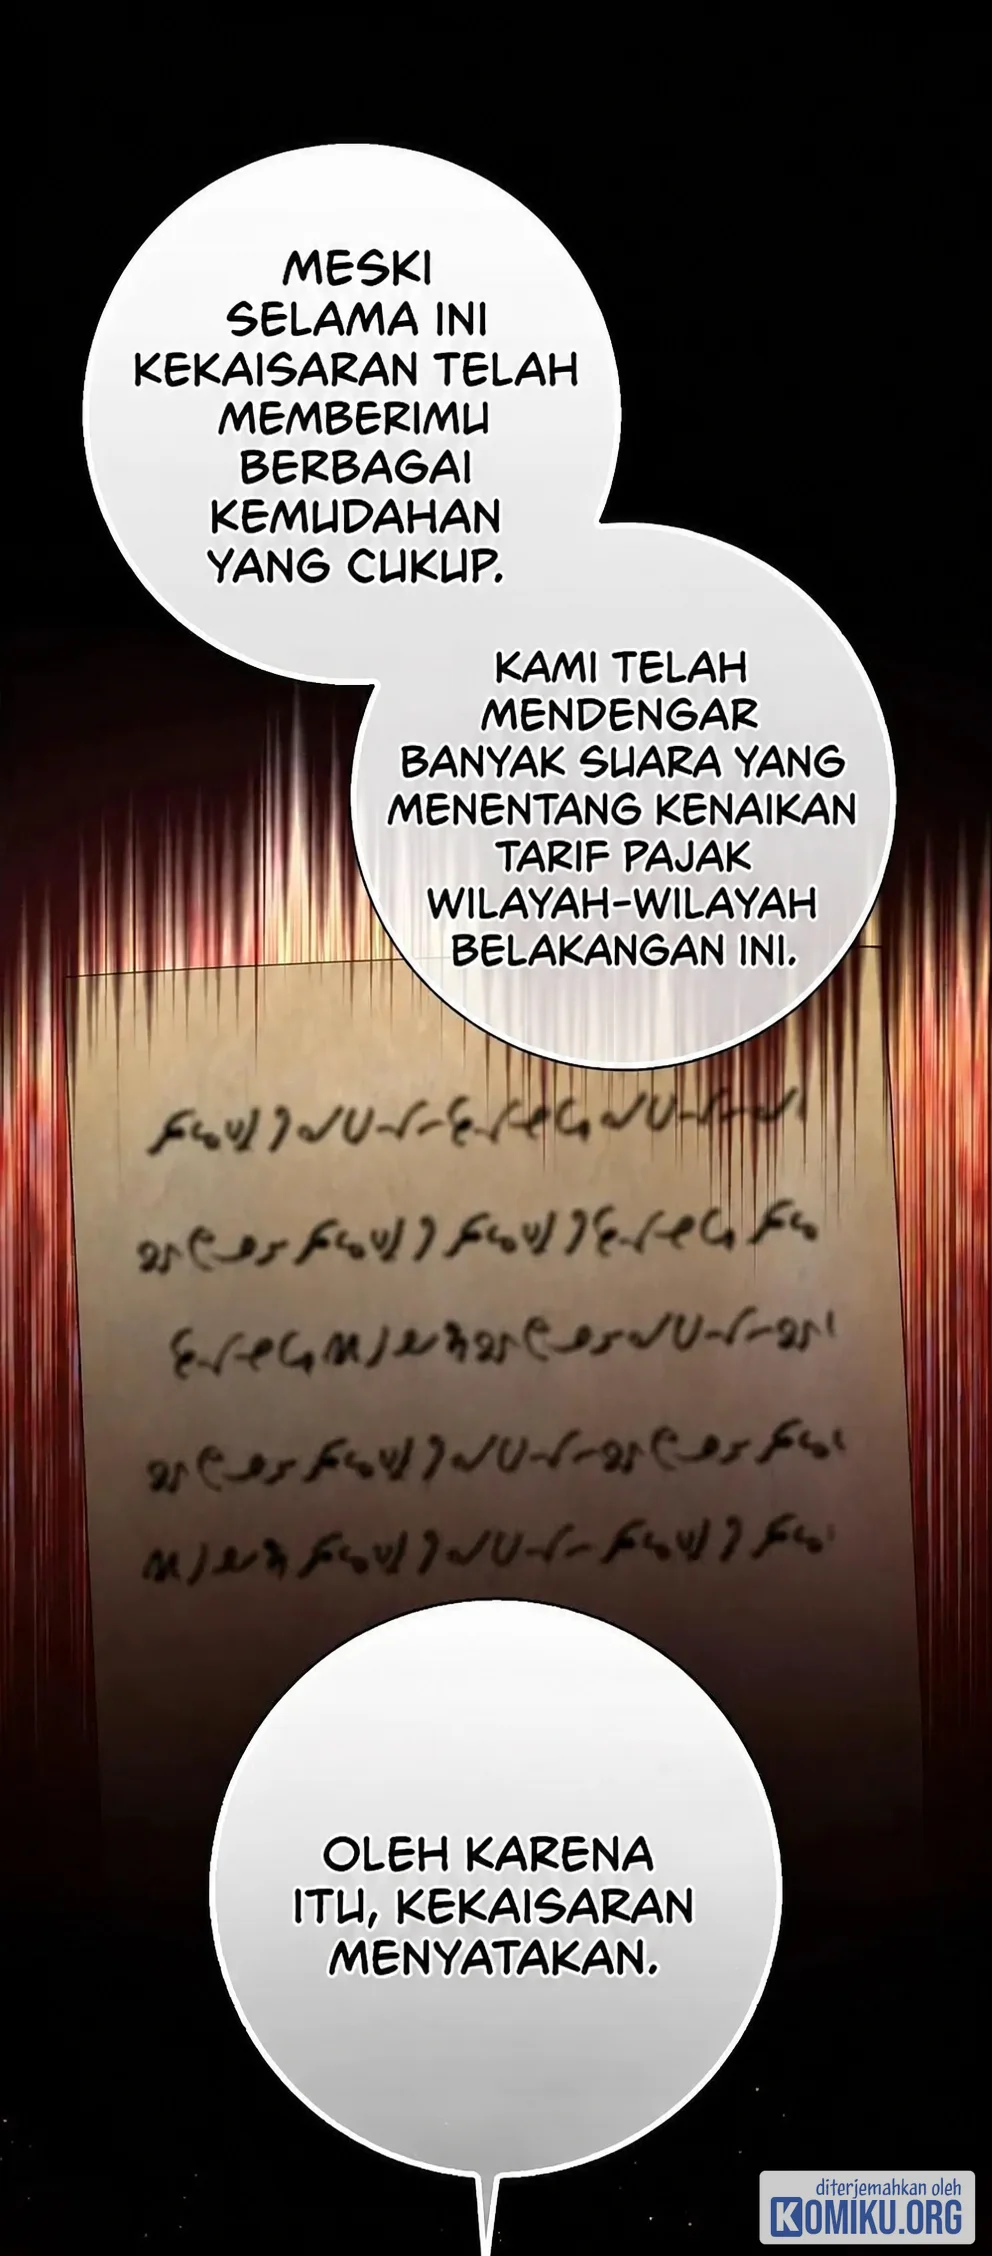 MESKI
SELAMA INI
KEKAISARAN TELAH
MEMBERIMU
BERBAGAI
KEMUDAHAN
YANG CUKUP.
KAMI TELAH
MENDENGAR
BANYAK SUARA YANG
MENENTANG KENAIKAN
TARIF PAJAK
WILAYAH-WILAYAH
BELAKANGAN INI.
OLEH KARENA
ITU, KEKAISARAN
MENYATAKAN.
diterjemahkan oleh
KOMIKU.ORG